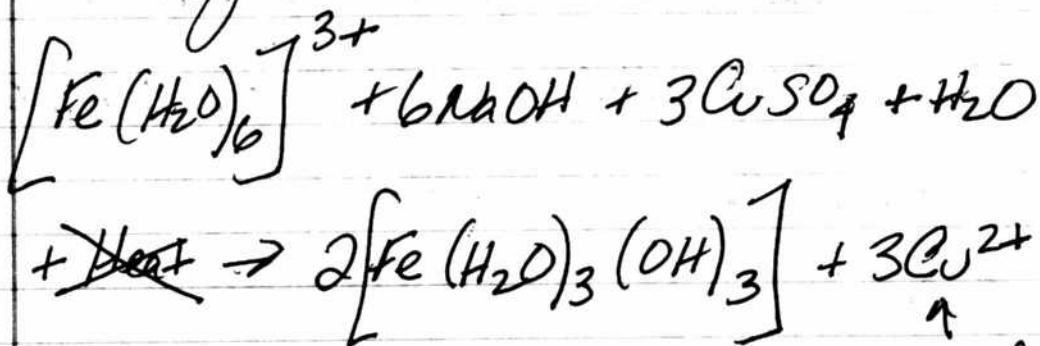 [Fe(H₂O)₆]³⁺ + 6NaOH + 3CuSO₄ + H₂O
+ Heat → 2[Fe(H₂O)₃(OH)₃] + 3Cu²⁺
↑